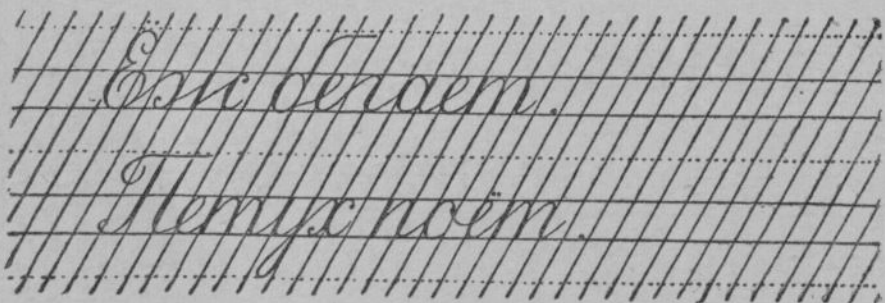 Ёж бегает.
Петух поёт.